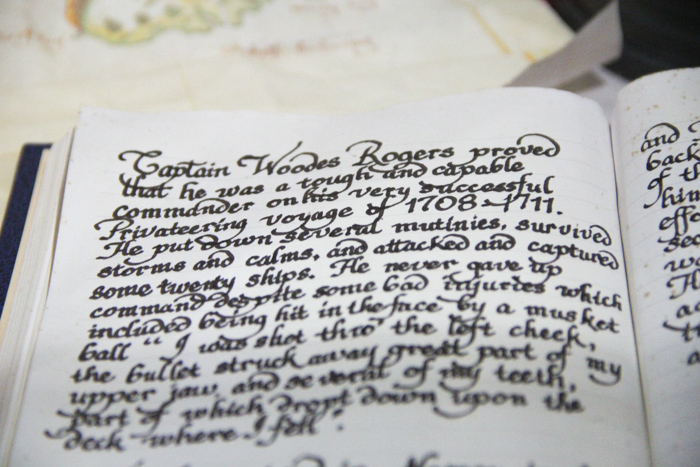 Captain Woodes Rogers proved
that he was a tough and capable
commander on his very successful
Privateering voyage of 1708-1711.
He put down several mutinies, survived
storms and calms, and attacked and captured
some twenty ships. He never gave up
command despite some bad injuries which
included being hit in the face by a musket
ball " I was shot thro' the left cheek,
the bullet struck away great part of my
upper jaw, and several of my teeth,
part of which dropt down upon the
deck where I fell".
and
back
of th
him
effo